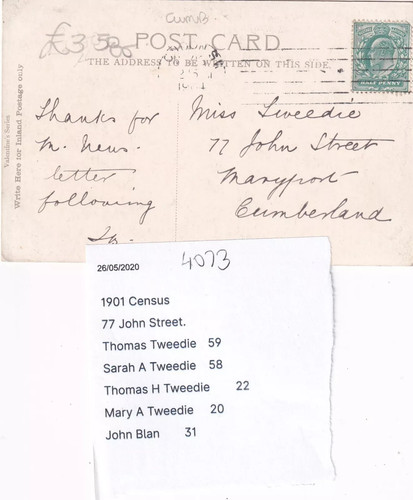 CUMB
£3.50
POST CARD.
THE ADDRESS TO BE WRITTEN ON THIS SIDE.
HALF PENNY
Valentine's Series
Write Here for Inland Postage only
Thanks for
m. News-
letter
following
Miss Tweedie
77 John Street
Maryport
Cumberland
26/05/2020
4073
1901 Census
77 John Street.
Thomas Tweedie 59
Sarah A Tweedie 58
Thomas H Tweedie 22
Mary A Tweedie 20
John Blan 31